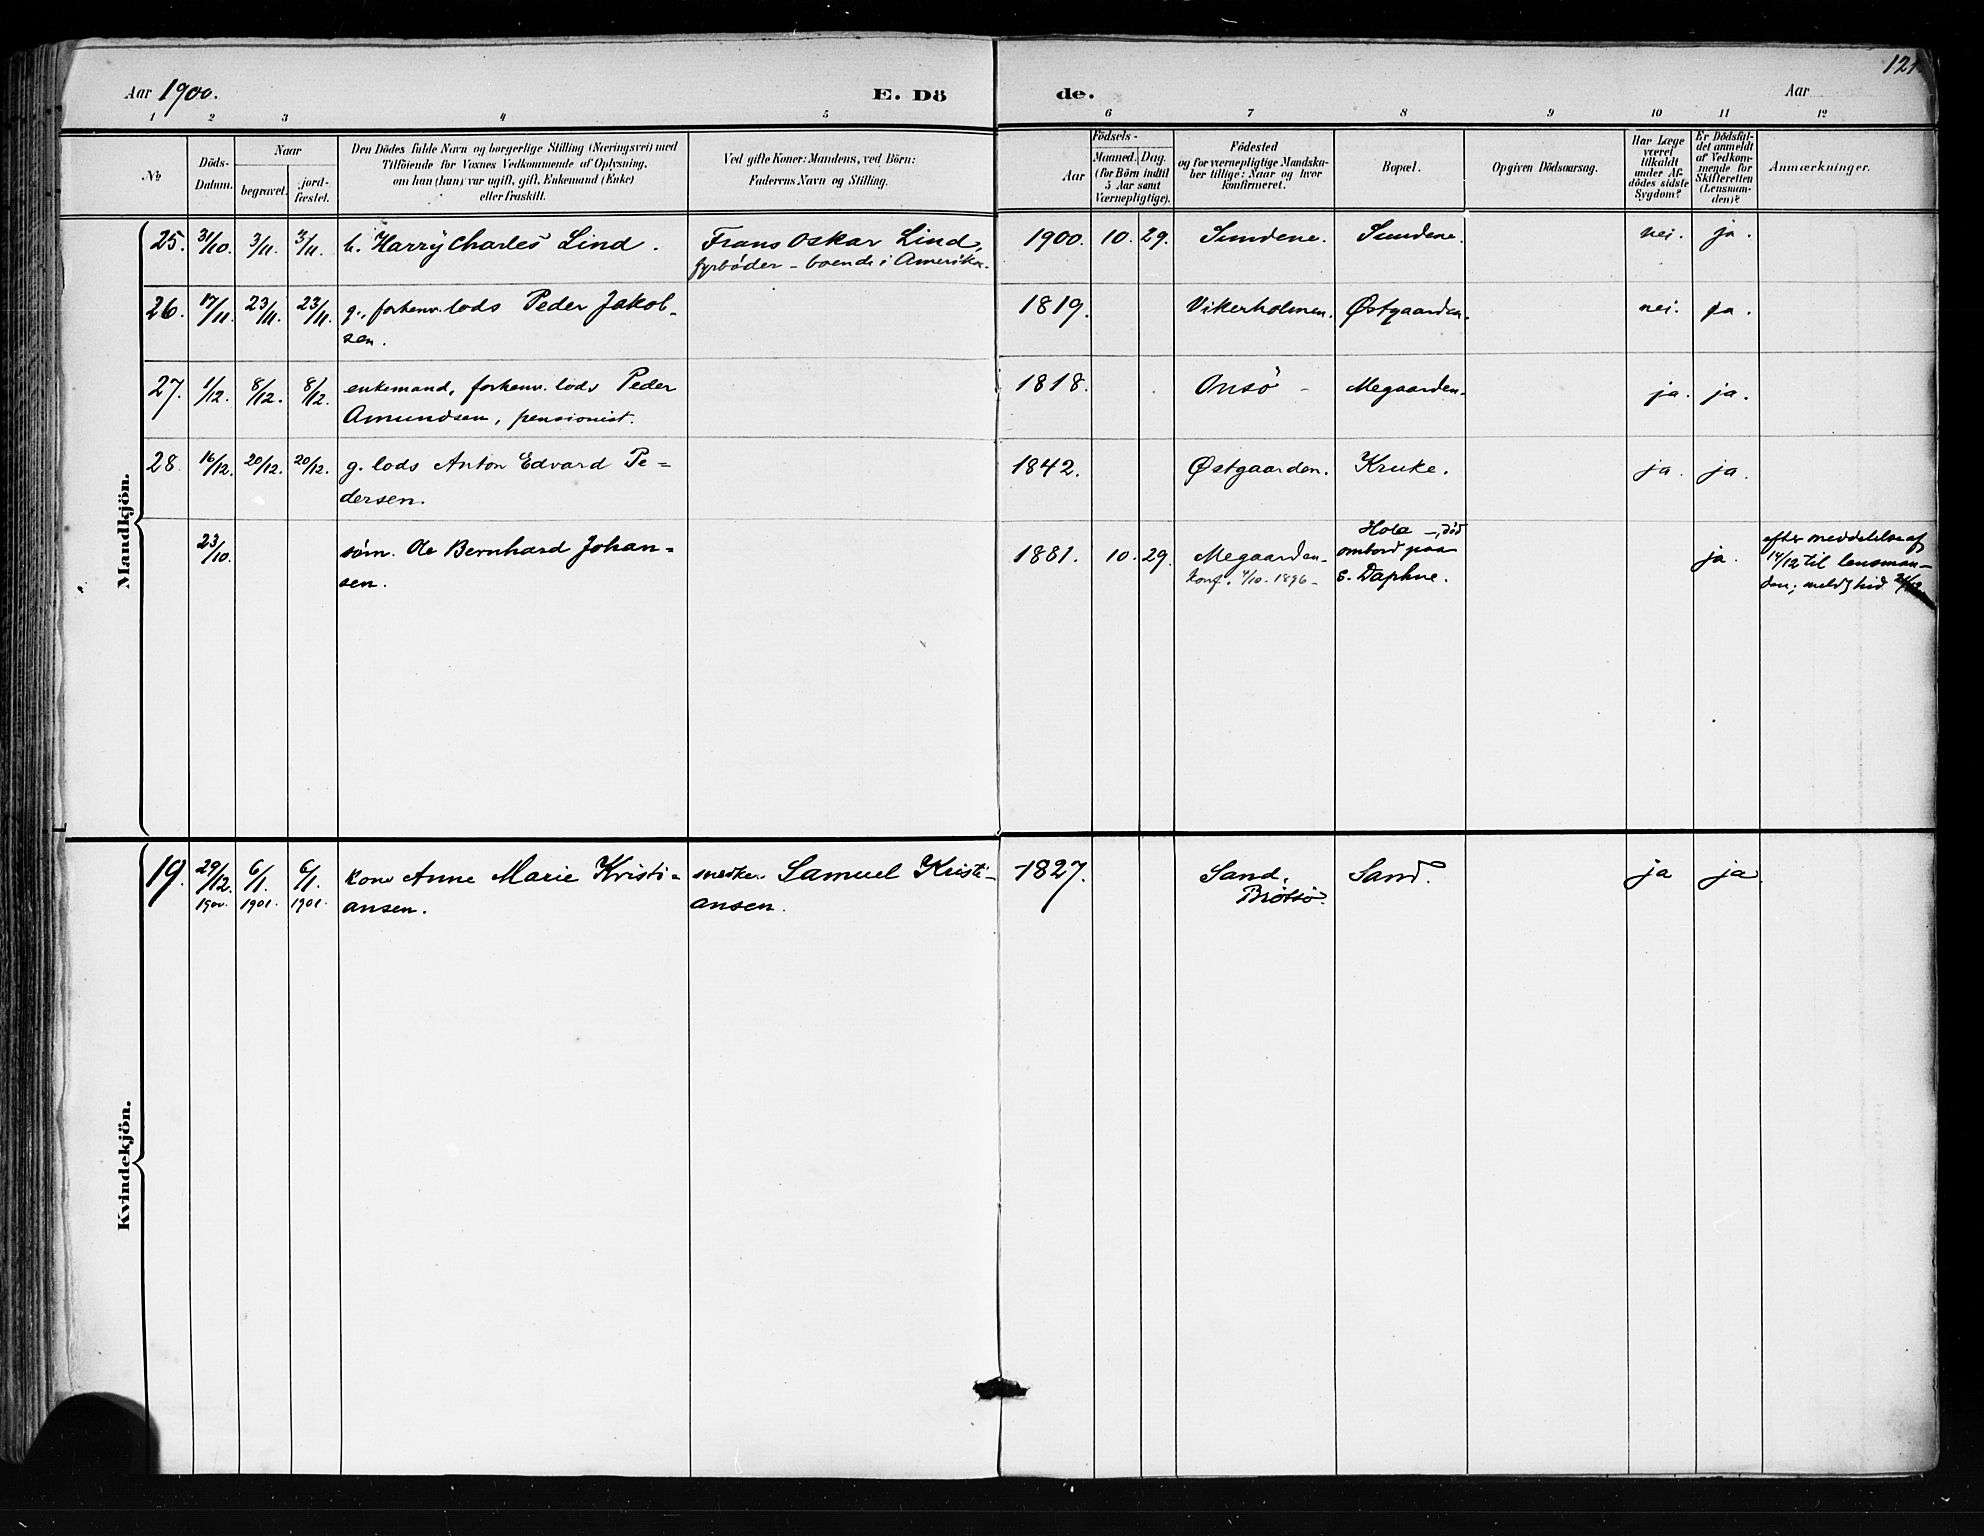 121.
Aar 1900. E. Dö de. Aar
1 2 3 4 5 6 7 8 9 10 11 12
№
Döds-Datum.
Naar
begravet.
jord-fæstet.
Den Dödes fulde Navn og borgerlige Stilling (Næringsvei) med
Tilföiende for Voxnes Vedkommende af Oplysning,
om han (hun) var ugift, gift, Enkemand (Enke)
eller fraskilt.
Ved gifte Koner: Mandens, ved Börn:
Faderens Navn og Stilling.
Födsels-
Aar
Maaned. Dag.
(for Börn indtil
5 Aar samt
Værnepligtige).
Födested
og for værnepligtige Mandska-
ber tillige: Naar og hvor
konfirmeret.
Bopæl.
Opgiven Dödsaarsag.
Har Læge
været
tilkaldt
under Af-
dödes sidste
Sygdom?
Er Dödsfal-
det anmeldt
af Vedkom-
mende for
Skifteretten
(Lensman-
den)?
Anmærkninger.
Mandkjön.
25. 31/10. 3/11. 3/11. b. Harry Charles Lind. Frans Oskar Lind, 1900. 10. 29. Sundene. Sundene. nei. ja.
fyrböder – boende i Amerika.
26. 17/11. 23/11. 23/11. g., forhenv. lods Peder Jakob- 1819. Vikerholmen. Østgaarden. nei. ja.
sen.
27. 1/12. 8/12. 8/12. enkemand, forhenv. lods Peder 1818. Onsö – Megaarden. ja. ja.
Amundsen, pensionist.
28. 16/12. 20/12. 20/12. g. lods Anton Edvard Pe= 1842. Østgaarden. Kruke. ja. ja.
dersen.
23/10. söm. Ole Bernhard Johan= 1881. 10. 29. Megaarden. Hola –, död ja. efter meddelelse af
sen. konf. 4/10. 1896 – ombord paa 14/12 til lensman-
S. Daphne. den; meldt hid
Kvindekjön.
19. 29/12. 6/1. 6/1. kone Anne Marie Kristi= snedker Samuel Kristi- 1827. Sand, Sand. ja ja.
1900. 1901. 1901. ansen. ansen. Bröttö.